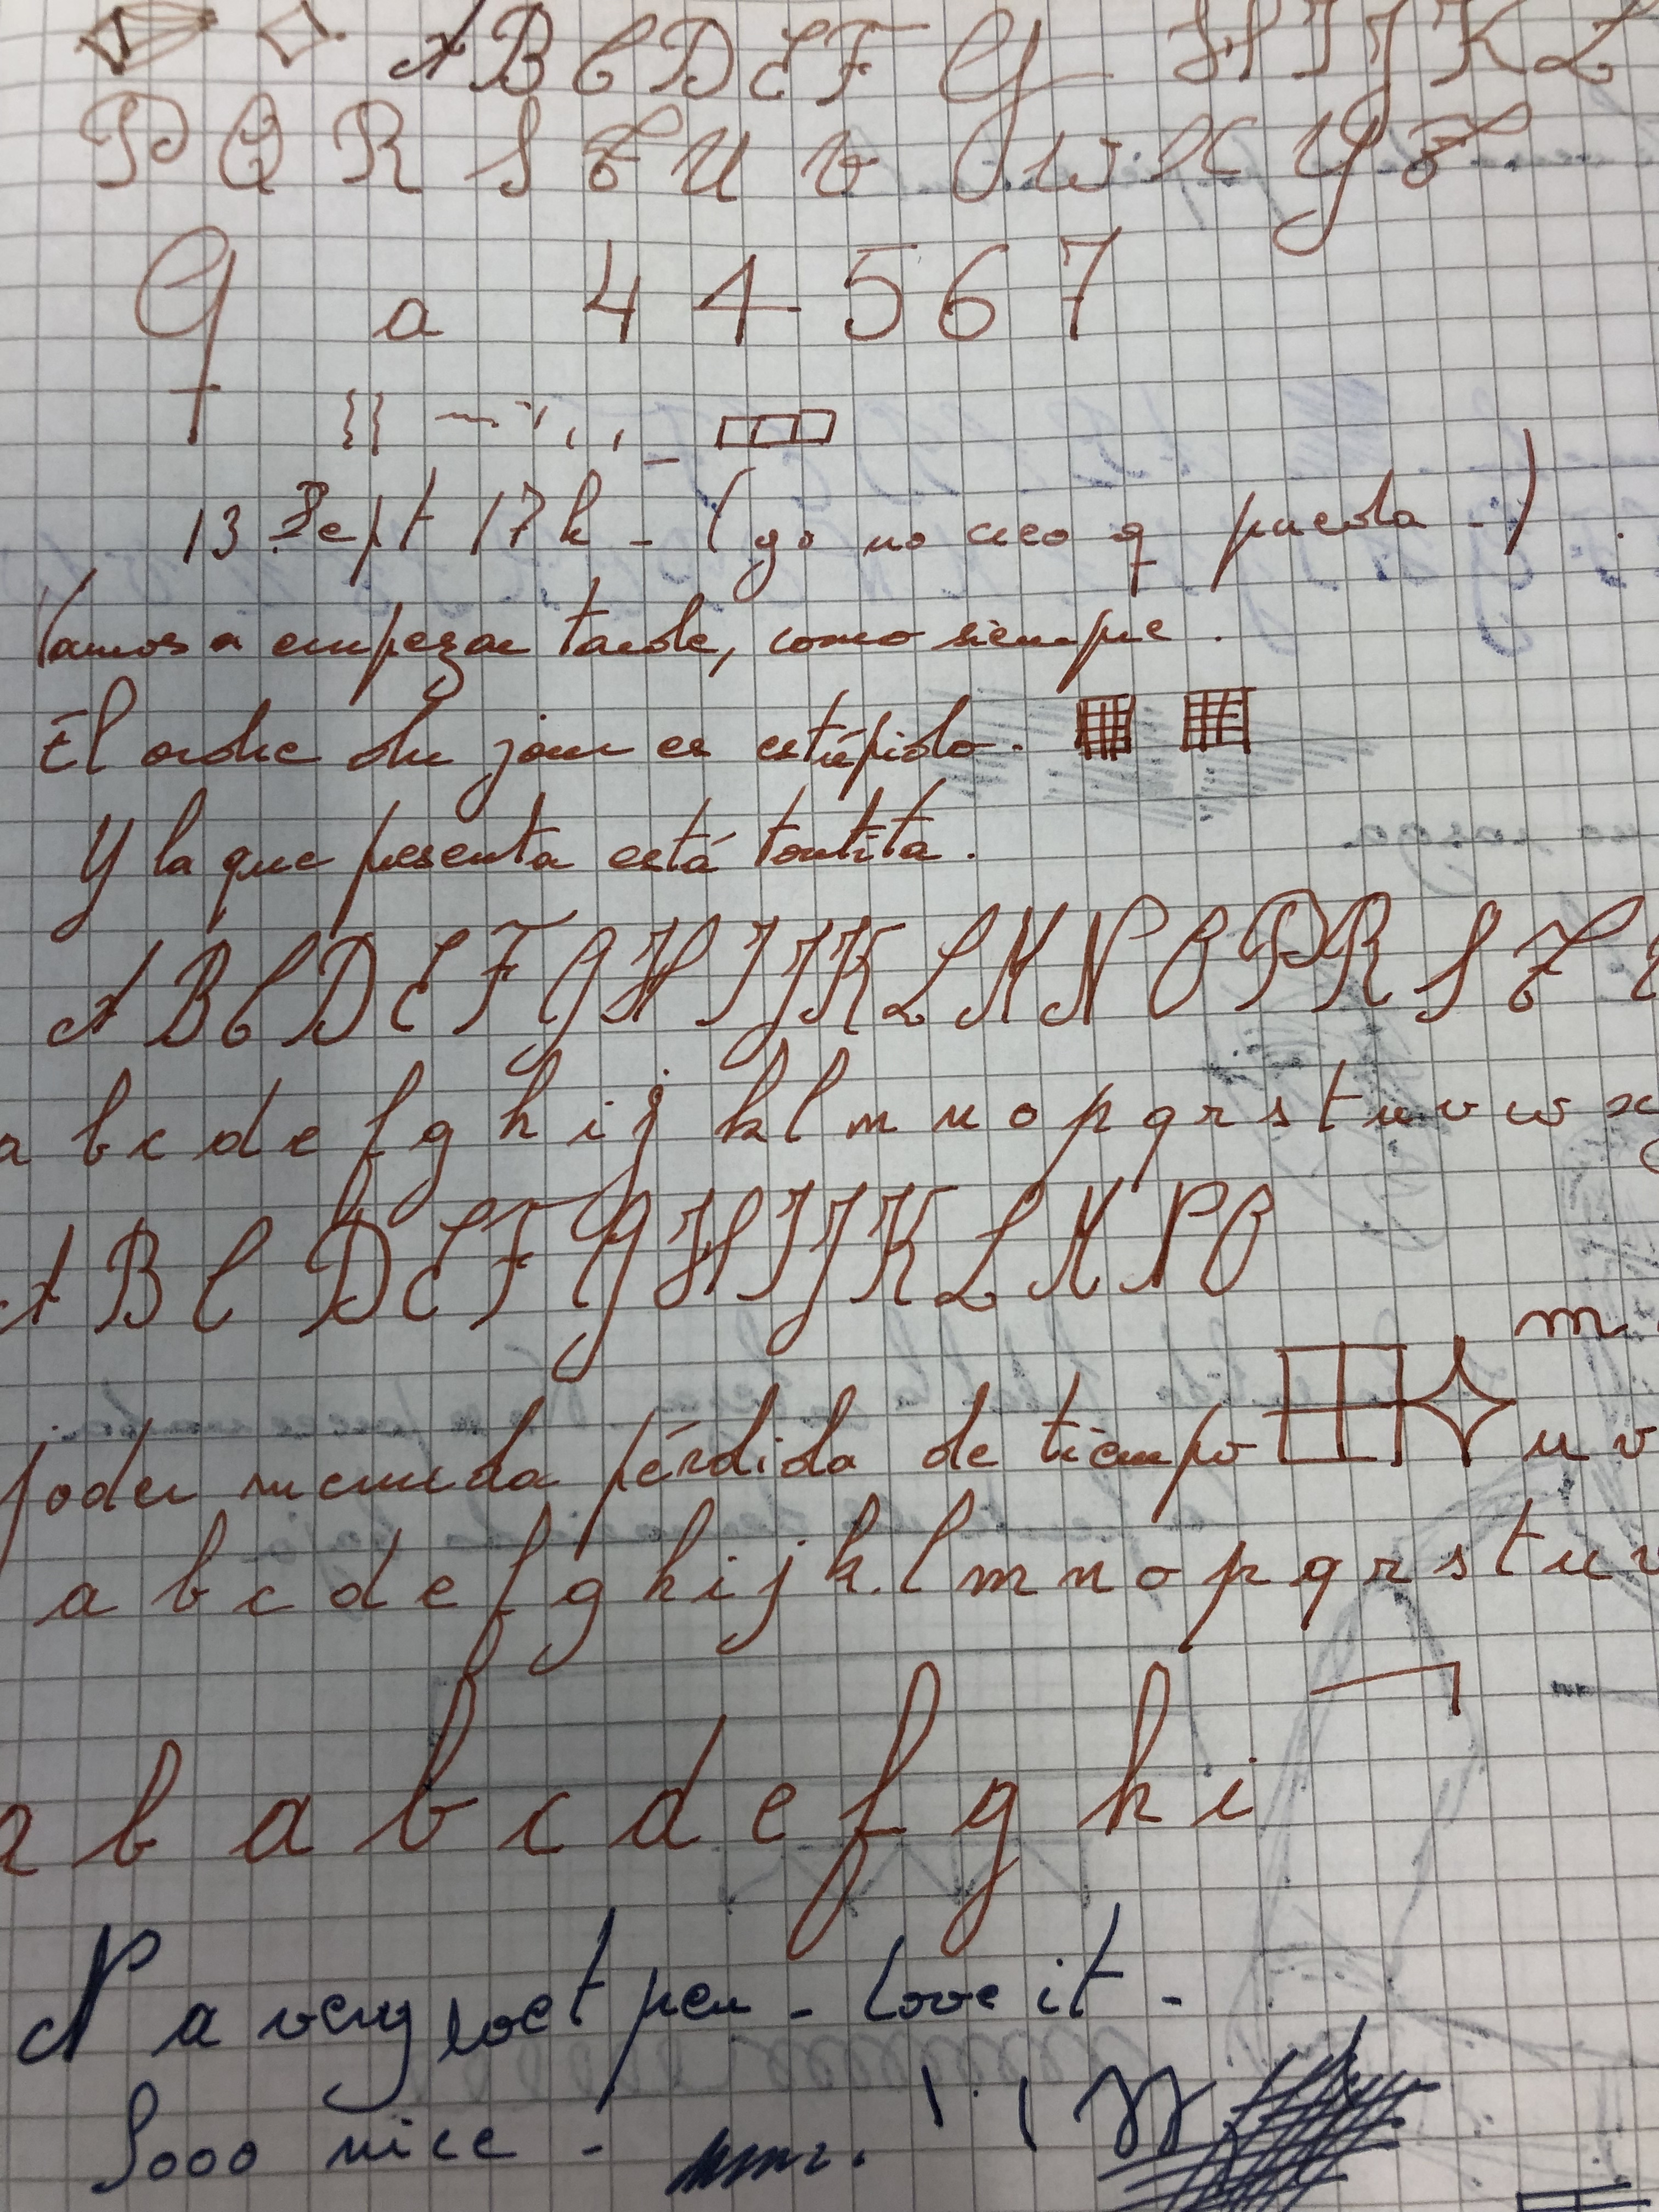 A B C D E F G H I J K L
P Q R S T U V G W X Y Z
9 a 4 4 5 6 7
13 Sept 17h - (yo no creo q pueda -)
Vamos a empezar tarde, como siempre.
El ordre du jour es estúpido.
Y la que presenta está tontita.
A B C D E F G H I J K L M N O P R S T
a b c d e f g h i j k l m n o p q r s t u v w x y
A B C D E F G H I J K L M N O
m
joder menuda pérdida de tiempo u v
a b c d e f g h i j k l m n o p q r s t u v
a b a b c d e f g h i
N a very wet pen - love it -
Sooo nice -